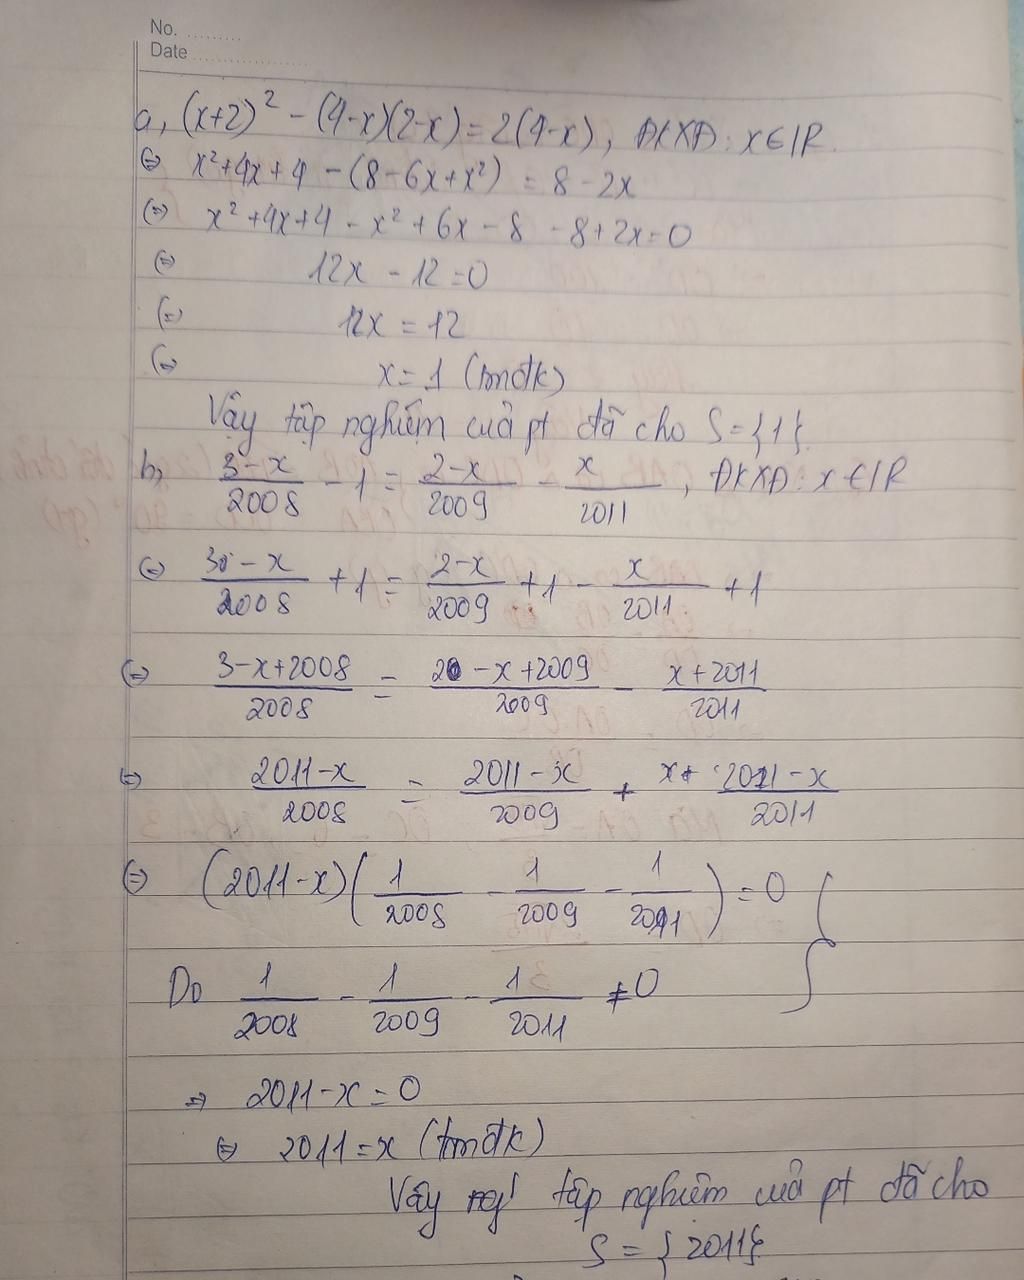 No. ..........
Date ......................
a, (x+2)² - (4-x)(2-x) = 2(4-x), ĐKXĐ: x∈IR.
⇔ x²+4x+4 - (8-6x+x²) = 8-2x
(=) x²+4x+4 - x²+6x-8 -8+2x=0
⇔ 12x - 12=0
(=) 12x = 12
⇔ x=1 (tmđk)
Vậy tập nghiệm của pt đã cho S={1}.
b, 3-x/2008 - 1 = 2-x/2009 - x/2011, ĐKXĐ: x∈IR
⇔ 3-x/2008 +1 = 2-x/2009 +1 - x/2011 +1
(=) 3-x+2008/2008 = 2-x+2009/2009 - x+2011/2011
(=) 2011-x/2008 = 2011-x/2009 + 2011-x/2011
(=) (2011-x)(1/2008 - 1/2009 - 1/2011) = 0
Do 1/2008 - 1/2009 - 1/2011 ≠0
=> 2011-x=0
⇔ 2011=x (tmđk)
Vậy tập nghiệm của pt đã cho
S={2011}